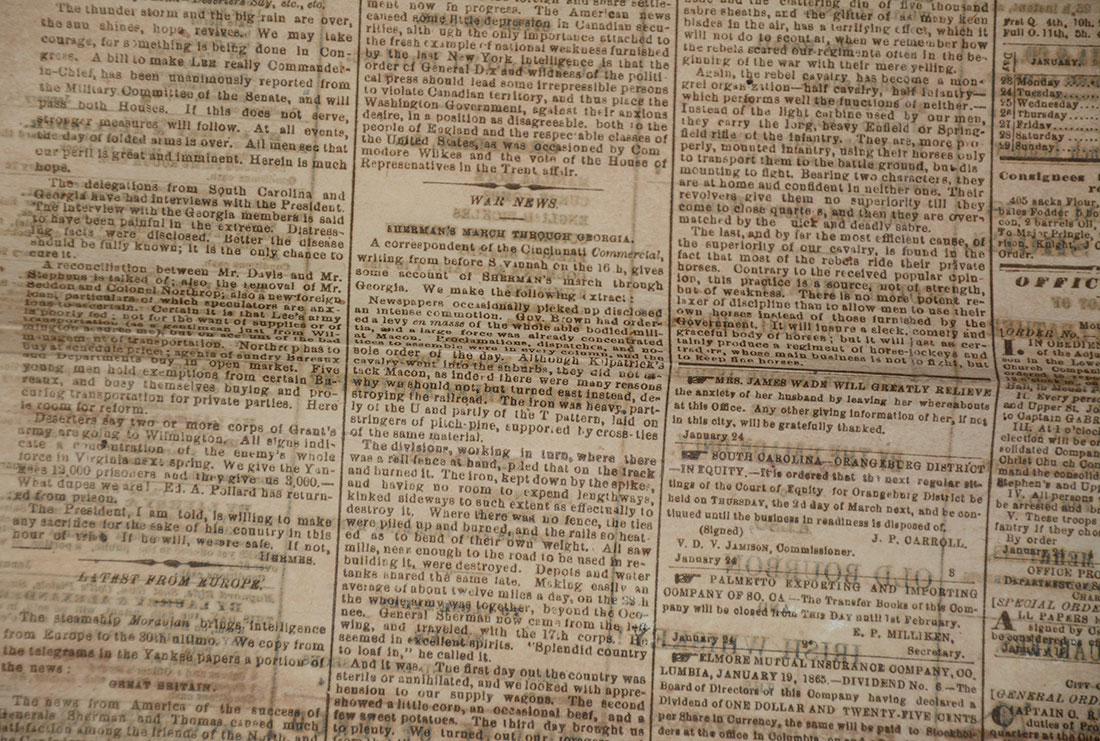 Deserters Say, etc., etc.
The thunder storm and the big rain are over,
the sun shines, hope revives. We may take
courage, for something is being done in Con-
gress. A bill to make LEE really Commander-
in-Chief, has been unanimously reported from
the Military Committee of the Senate, and will
pass both Houses. If this does not serve,
stronger measures will follow. At all events,
the day of folded arms is over. All men see that
our peril is great and imminent. Herein is much
hope.
The delegations from South Carolina and
Georgia have had interviews with the President.
The interview with the Georgia members is said
to have been painful in the extreme. Distress-
ing facts were disclosed. Better the disease
should be fully known; it is the only chance to
cure it.
A reconciliation between Mr. Davis and Mr.
Stephens is talked of; also the removal of Mr.
Seddon and Colonel Northrop; also a new foreign
loan, particulars of which speculators are anx-
ious to ascertain. Certain it is that Lee's army
is poorly fed; not for the want of supplies or of
transportation (as a gentleman just from Wil-
mington assures me) but
management of transportation. Northrop has to
buy at schedule price; agents of sundry Bureaux
and Departments buy in open market. Five
young men hold exemptions from certain Bu-
reaux, and busy themselves buying and pro-
curing transportation for private parties. Here
is room for reform.
Deserters say two or more corps of Grant's
army are going to Wilmington. All signs indi-
cate a concentration of the enemy's whole
force in Virginia next spring. We give the Yan-
kees 12,000 prisoners and they give us 3,000.—
What dupes we are! Ed. A. Pollard has return-
ed from prison.
The President, I am told, is willing to make
any sacrifice for the sake of his country in this
hour of trial. If he will, we are safe. If not,
HERMES.
LATEST FROM EUROPE.
The steamship Moravian brings intelligence
from Europe to the 30th ultimo. We copy from
the telegrams in the Yankee papers a portion of
the news:
GREAT BRITAIN.
The news from America of the success of
Generals Sherman and Thomas caused much
satisfaction among the friends of the North, and
ment now in progress. The American news
caused some little depression in Canadian secu-
rities, although the only importance attached to
the fresh example of national weakness furnished
by the last New York intelligence is that the
order of General Dix and wildness of the politi-
cal press should lead some irrepressible persons
to violate Canadian territory, and thus place the
Washington Government, against their anxious
desire, in a position as disagreeable, both to the
people of England and the respectable classes of
the United States, as was occasioned by Com
modore Wilkes and the vote of the House of
Represenatives in the Trent affair.
WAR NEWS.
SHERMAN'S MARCH THROUGH GEORGIA.
A correspondent of the Cincinnati Commercial,
writing from before Savannah on the 16 h, gives
some account of SHERMAN'S march through
Georgia. We make the following extract:
Newspapers occasionally picked up disclosed
an intense commotion. Gov. Brown had order-
ed a levy en masse of the whole able bodied mili-
tia, and a large force was already concentrated
at Macon. Proclamations, dispatches, and no-
tices to assemble were in every column, and the
sole order of the day. Although Kilpatrick's
cavalry went into the suburbs, they did not at-
tack Macon, as indeed there were many reasons
why we should not, but turned east instead, de-
stroying the railroad. The iron was heavy, part-
ly of the U and partly of the T pattern, laid on
stringers of pitch-pine, supported by cross-ties
of the same material.
The divisions, working in turn, where there
was a rail fence at hand, piled that on the track
and burned it. The iron, kept down by the spikes,
and having no room to expend lengthways,
kinked sideways to such extent as effectually to
destroy it. Where there was no fence, the ties
were piled up and burned, and the rails so heat-
ed as to bend of their own weight. All saw
mills, near enough to the road to be used in re-
building it, were destroyed. Depots and water
tanks shared the same fate. Making easily an
average of about twelve miles a day, on the
the whole army was together, beyond the Oco-
nee. General Sherman now came from the left
wing, and traveled with the 17th corps. He
seemed in excellent spirits. "Splendid country
to loaf in," he called it.
And it was. The first day out the country was
sterile or annihilated, and we looked with appre-
hension to our supply wagons. The second
showed a little corn, an occasional beef, and a
few sweet potatoes. The third day brought us
to plenty. We turned out our
and the clattering din of five thousand
sabre sheaths, and the glitter of as many keen
blades in the air, has a terrifying effect, which it
will not do to scout at, when we remember how
the rebels scared our regiments often in the be-
ginning of the war with their mere yelling.
Again, the rebel cavalry has become a mon-
grel organization—half cavalry, half infantry—
which performs well the functions of neither.—
Instead of the light carbine used by our men,
they carry the long, heavy Enfield or Spring-
field rifle of the infantry. They are, more pro
perly, mounted infantry, using their horses only
to transport them to the battle ground, but dis
mounting to fight. Bearing two characters, they
are at home and confident in neither one. Their
revolvers give them no superiority till they
come to close quarters, and then they are over-
matched by the quick and deadly sabre.
The last, and by far the most efficient cause, of
the superiority of our cavalry, is found in the
fact that most of the rebels ride their private
horses. Contrary to the received popular opin-
ion, this practice is a source, not of strength,
but of weakness. There is no more potent re-
laxer of discipline than to allow men to use their
own horses instead of those furnished by the
Government. It will insure a sleek, comely and
graceful body of horses; but it will just as cer-
tainly produce a regiment of horse-jockeys and
traders, whose main business is not to fight, but
to keep fine horses.
MRS. JAMES WADE WILL GREATLY RELIEVE
the anxiety of her husband by leaving her whereabouts
at this Office. Any other giving information of her, if not
in this city, will be gratefully thanked.
January 24
SOUTH CAROLINA—ORANGEBURG DISTRICT
—IN EQUITY.—It is ordered that the next regular sit-
tings of the Court of Equity for Orangeburg District be
held on THURSDAY, the 2d day of March next, and be con-
tinued until the business in readiness is disposed of.
(Signed) J. P. CARROLL.
V. D. V. JAMISON, Commissioner.
January 24 8
PALMETTO EXPORTING AND IMPORTING
COMPANY OF SO. CA—The Transfer Books of this Com-
pany will be closed from THIS DAY until 1st February.
E. P. MILLIKEN,
January 24 Secretary.
ELMORE MUTUAL INSURANCE COMPANY, CO.
LUMBIA, JANUARY 19, 1865.—DIVIDEND No. 6—The
Board of Directors of this Company having declared a
Dividend of ONE DOLLAR AND TWENTY-FIVE CENTS
per Share in Currency, the same will be paid to Stockhol-
ders at the Office in Columbia, on
First Q. 4th, 10h.
Full O. 11th, 5h.
JANUARY.
23 Monday
24 Tuesday
25 Wednesday
26 Thursday
27 Friday
28 Saturday
29 Sunday
Consignees
405 sacks Flour,
bales Fodder
son, 2 barrels Oil,
To Major Pringle,
rison, Knight, J
Order.
OFFIC
ORDER No.
II. Every person
and Upper St. Jo
to Captain GABR
III. At 1 o'clock
election will be
solidated Compan
Christ Chu ch Con
made the consolid
Stephen's and Upp
IV. All persons
be arrested and
V. These troops
fantry if they choo
By order
January
OFFICE PRO
DEPARTMENT OF
CHAR
[SPECIAL ORDE
ALL PAPERS
signed by
be considered
CITY
[GENERAL ORDE
CAPTAIN C. R.
duties of Pro
quarters at the Cit